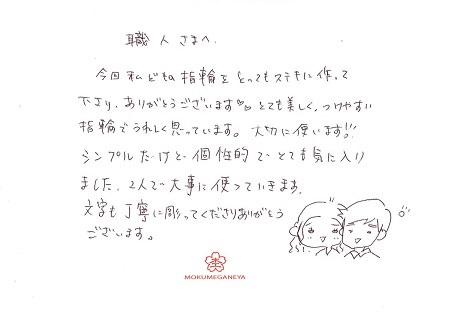 職人さまへ.
今回私どもの指輪をとってもステキに作って
下さり、ありがとうございます♡♡とても美しく、つけやすい
指輪でうれしく思っています。大切に使います!!
シンプルだけど個性的でとても気に入り
ました。2人で大事に使っていきます。
文字も丁寧に彫ってくださりありがとう
ございます。
MOKUMEGANEYA